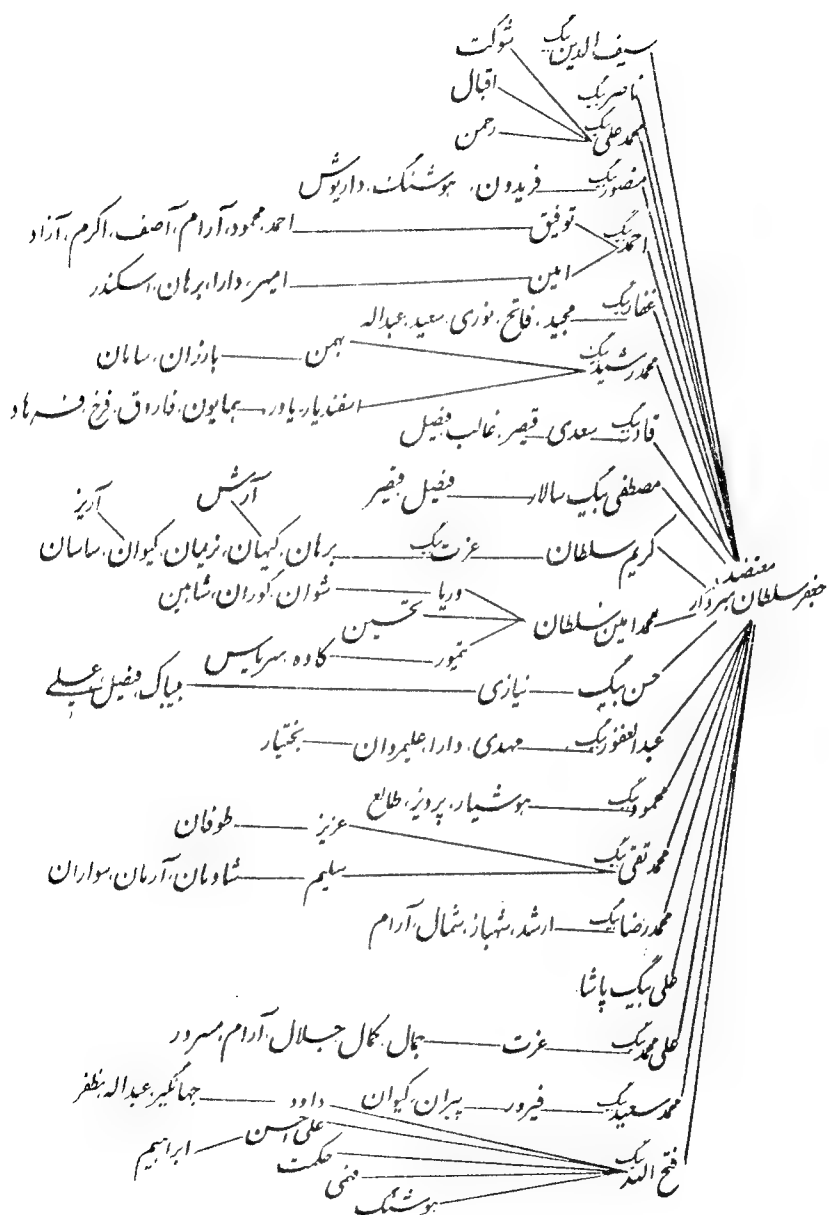 سیف الدین بیگ شوکت
ناصر بیگ اقبال
محمد علی بیگ رحمن
منصور بیگ فریدون، هوشنگ، داریوش
احمد بیگ توفیق احمد، محمود، آرام، آصف، اکرم، آزاد
امین امیر، دارا، برهان، اسکندر
غفار بیگ مجید، فاتح، نوری، سعید، عبداله
محمد رشید بیگ بهمن بارزان، سامان
اسفندیار، یاور همایون، فاروق، فرخ، فرهاد
قادر بیگ سعدی، قیصر، غالب، فیصل
مصطفی بیگ سالار فیصل، قیصر
آرش آریز
کریم سلطان عزت بیگ برهان، کیهان، نریمان، کیوان، ساسان
معتضد
جعفر سلطان سردار
محمد امین سلطان وریا شوان، گوران، شاهین
تحسین
تیمور کاوه، سریاس
حسن بیگ نیازی بیباک، فیصل، علی
عبدالغفور بیگ مهدی، دارا، علیمردان بختیار
محمود بیگ هوشیار، پرویز، طالع
محمد تقی بیگ عزیز طوفان
سلیم شادمان، آرمان، سواران
محمد رضا بیگ ارشد، شهباز، شمال، آرام
علی بیگ پاشا
علی محمد بیگ عزت جمال، کمال، جلال، آرام، مسرور
محمد سعید بیگ فیروز پیران، کیوان
فتح الله بیگ داود جهانگیر، عبداله، مظفر
علی احسن ابراهیم
حکمت
فهمی
هوشنگ